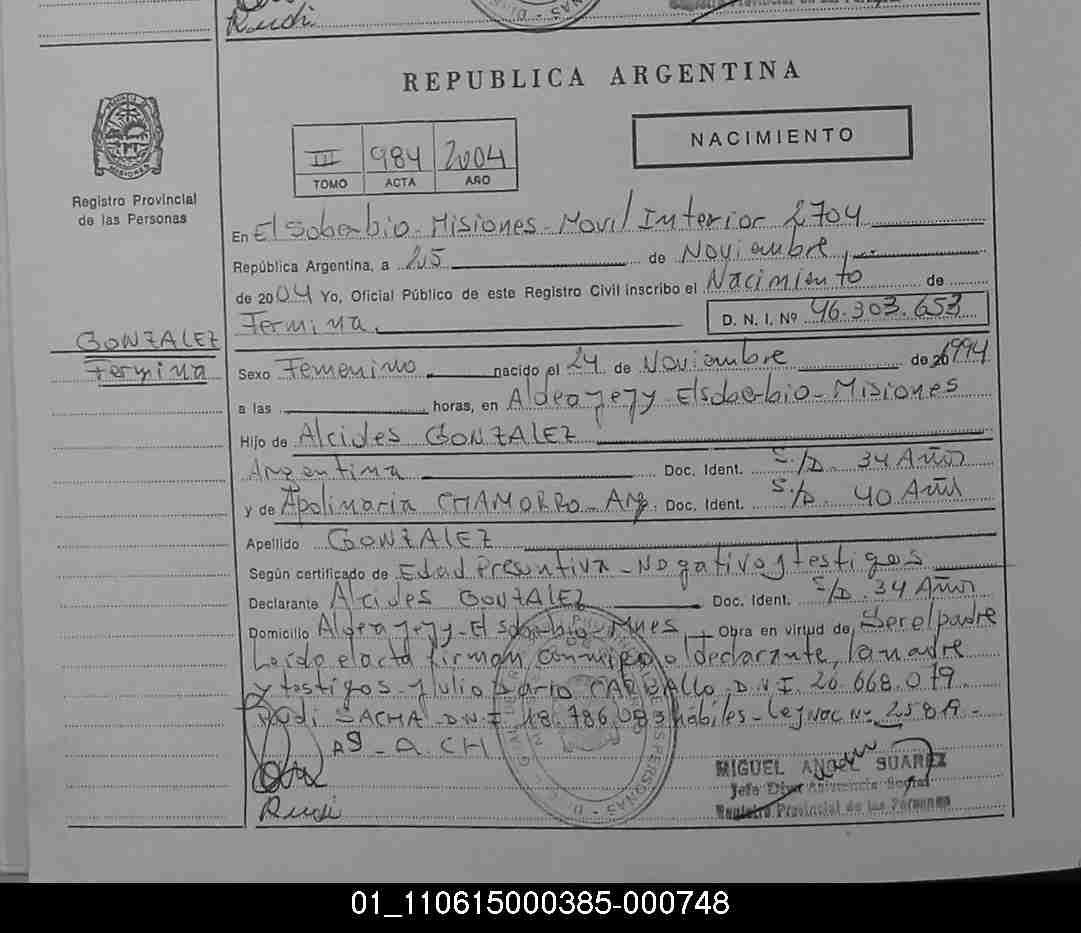 Rudi
REPUBLICA ARGENTINA
NACIMIENTO
III 984 2004
TOMO ACTA AÑO
Registro Provincial
de las Personas
En El Soberbio - Misiones - Movil Interior 2704
República Argentina, a 25 de Noviembre
de 2004 Yo, Oficial Público de este Registro Civil inscribo el Nacimiento de
Fermina D. N. I. Nº 46.303.653
GONZALEZ
Fermina
Sexo Femenino nacido el 24 de Noviembre de 1994
a las horas, en Aldea yejy - El Soberbio - Misiones
Hijo de Alcides GONZALEZ
Argentina Doc. Ident. S/D. 34 Años
y de Apolinaria CHAMORRO - Arg. Doc. Ident. S/D. 40 Años
Apellido GONZALEZ
Según certificado de Edad Presuntiva - Negativo y testigos
Declarante Alcides GONZALEZ Doc. Ident. S/D. 34 Años
Domicilio Aldea yejy - El Soberbio - Mnes Obra en virtud de Ser el padre
Leída el acta firman conmigo declarante, la madre
y testigos - Julio Dario CARBALLO, D.N.I. 26.668.079
Rudi SACHA D.N.I 18.786.083 hábiles - Ley Nac Nº 2589 -
A9 - A.CH
MIGUEL ANGEL SUAREZ
Registro Provincial de las Personas
Rudi
01_110615000385-000748